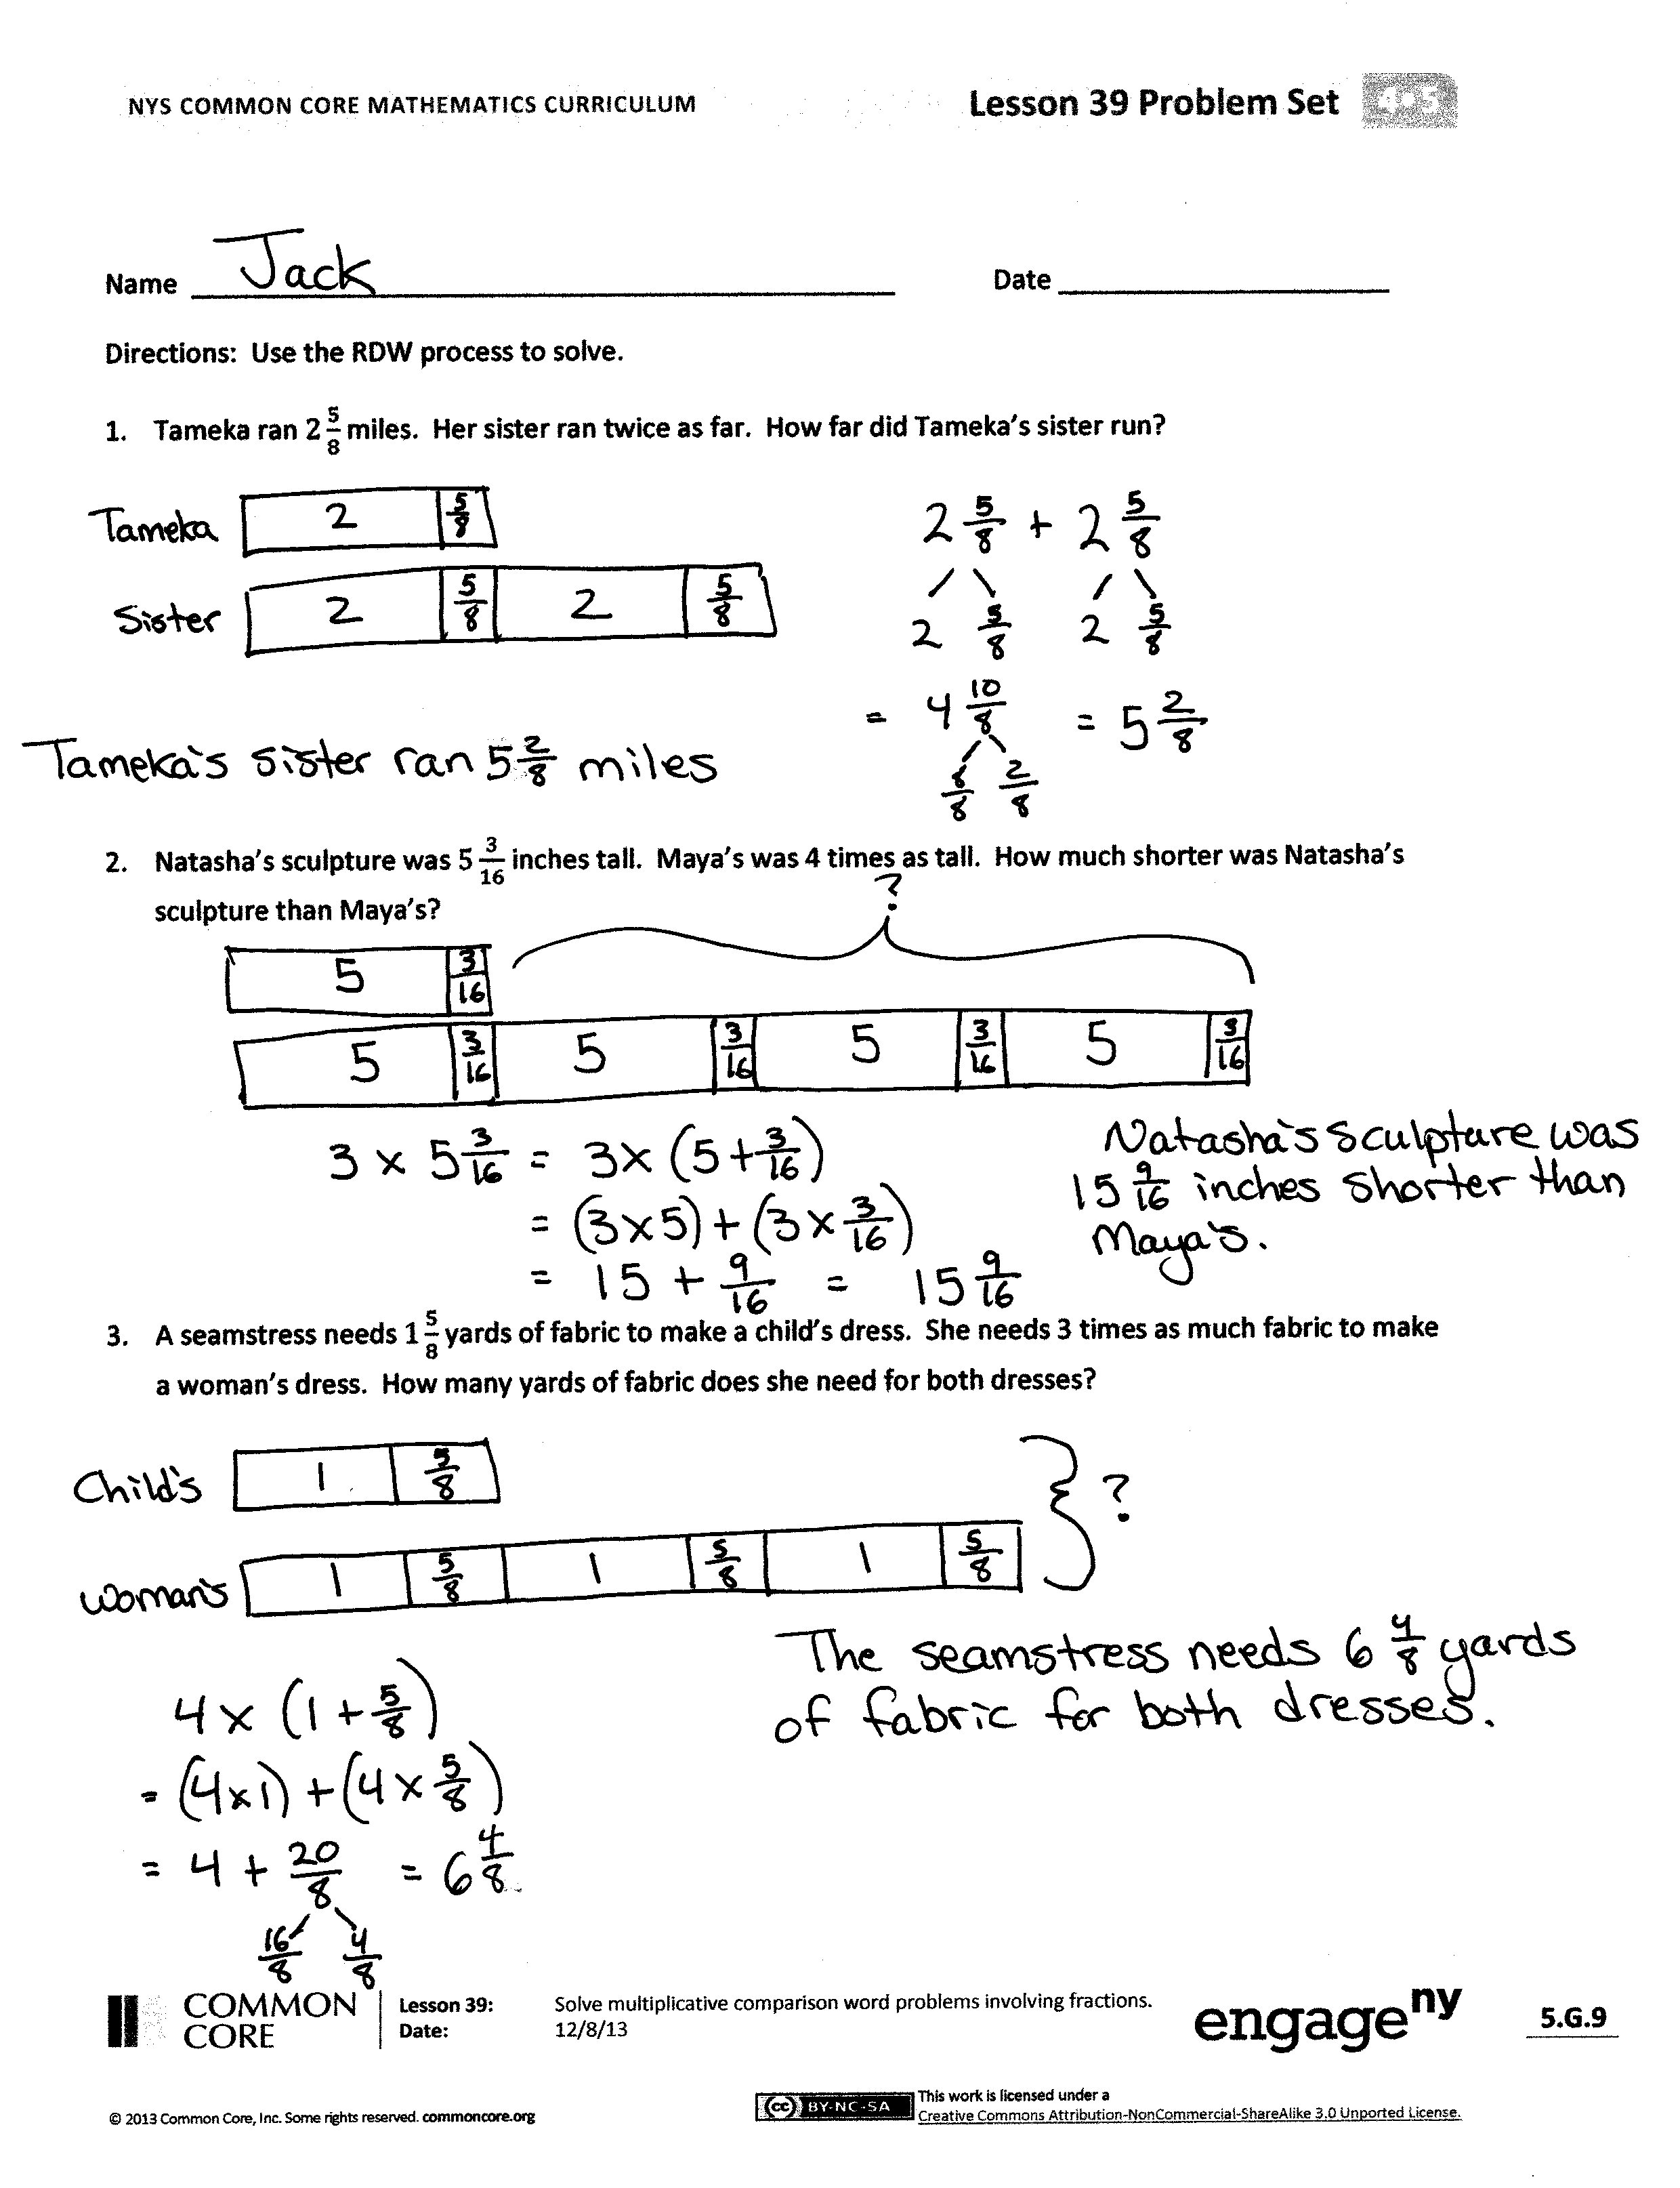 NYS COMMON CORE MATHEMATICS CURRICULUM
Lesson 39 Problem Set 4•5
Name Jack
Date
Directions: Use the RDW process to solve.
1. Tameka ran 2 5/8 miles. Her sister ran twice as far. How far did Tameka's sister run?
Tameka 2 5/8
Sister 2 5/8 2 5/8
2 5/8 + 2 5/8
2 5/8 2 5/8
= 4 10/8 = 5 2/8
8/8 2/8
Tameka's sister ran 5 2/8 miles
2. Natasha's sculpture was 5 3/16 inches tall. Maya's was 4 times as tall. How much shorter was Natasha's
sculpture than Maya's?
?
5 3/16
5 3/16 5 3/16 5 3/16 5 3/16
3 × 5 3/16 = 3× (5 + 3/16)
= (3×5) + (3 × 3/16)
= 15 + 9/16 = 15 9/16
Natasha's sculpture was
15 9/16 inches shorter than
Maya's.
3. A seamstress needs 1 5/8 yards of fabric to make a child's dress. She needs 3 times as much fabric to make
a woman's dress. How many yards of fabric does she need for both dresses?
Child's 1 5/8
Woman's 1 5/8 1 5/8 1 5/8
?
The seamstress needs 6 4/8 yards
of fabric for both dresses.
4 × (1 + 5/8)
= (4×1) + (4 × 5/8)
= 4 + 20/8 = 6 4/8
16/8 4/8
COMMON
CORE
Lesson 39: Solve multiplicative comparison word problems involving fractions.
Date: 12/8/13
engage ny
5.G.9
© 2013 Common Core, Inc. Some rights reserved. commoncore.org
cc BY-NC-SA
This work is licensed under a
Creative Commons Attribution-NonCommercial-ShareAlike 3.0 Unported License.